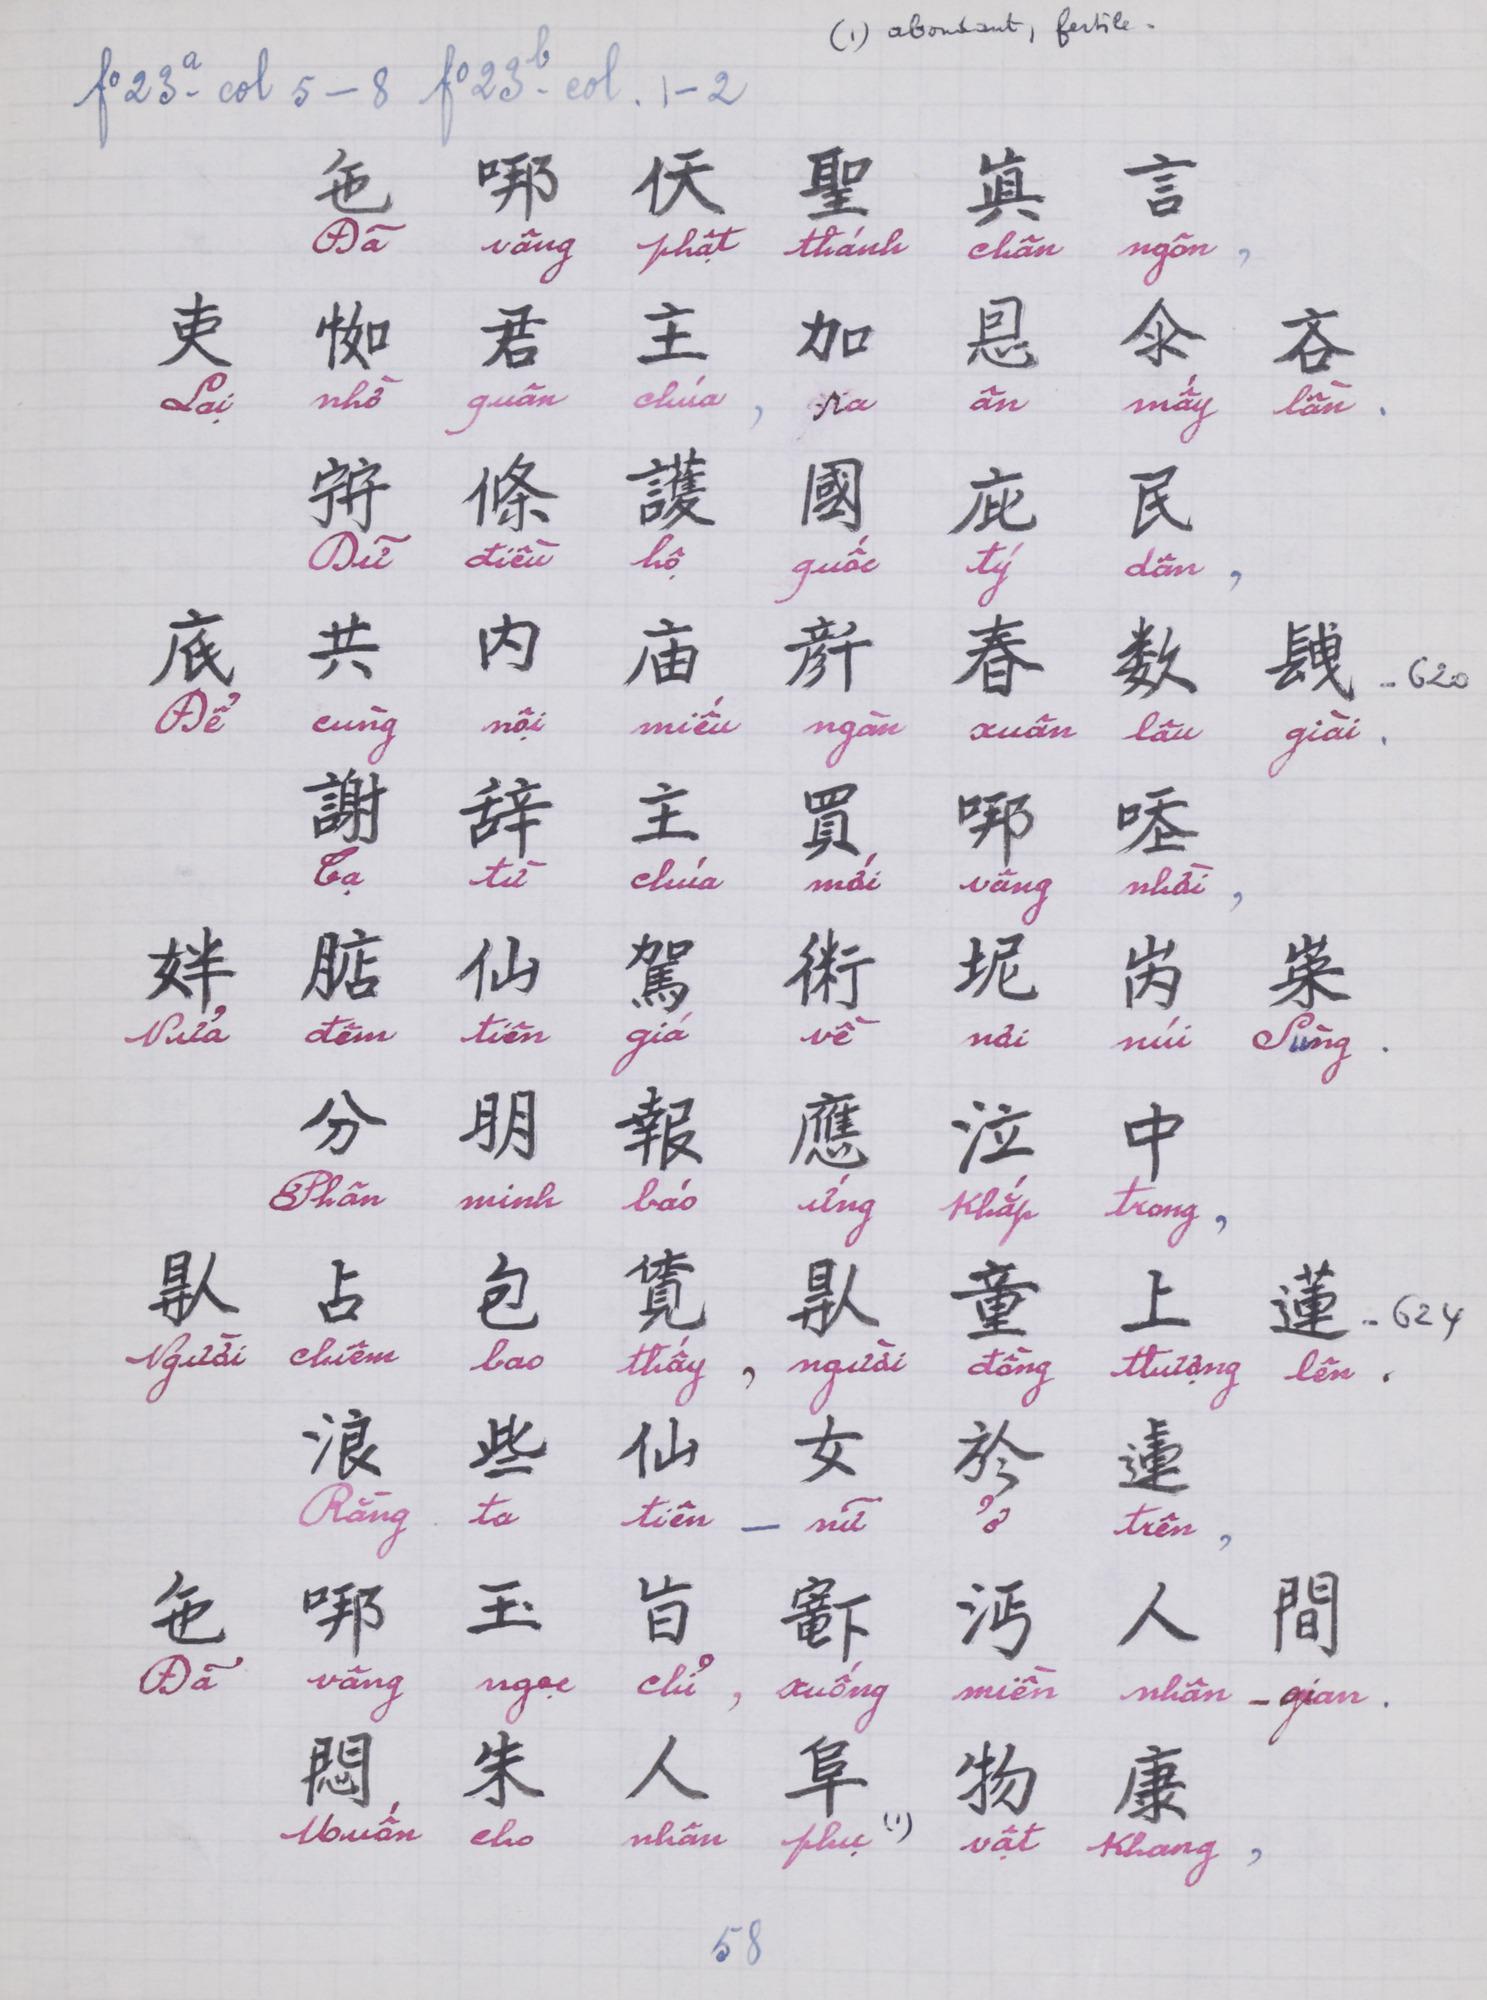 (1) abondant, fertile.
fo 23a- col 5-8 fo 23b- col. 1-2
㐌 哪 伏 聖 眞 言
Đã vâng phật thánh chân ngôn,
吏 㤕 君 主 加 恩 氽 吝
Lại nhờ quân chúa, gia ân mấy lần.
條 護 國 庇 民
Dữ điều hộ quốc tý dân,
底 共 内 庙 春 数 -620
Để cùng nội miếu ngàn xuân lâu giài.
謝 辞 主 買 哪 㖇
Tạ từ chúa mới vâng nhời,
姅 𣎀 仙 駕 術 坭 𡶀 崇
Nửa đêm tiên giá về nơi núi Sùng.
分 明 報 應 泣 中
Phân minh báo ứng khắp trong,
𠊚 占 包 覓 𠊚 童 上 蓮 -624
Người chiêm bao thấy, người đồng thượng lên.
浪 些 仙 女 於 蓮
Rằng ta tiên - nữ ở trên,
㐌 哪 玉 旨 沔 人 間
Đã vâng ngọc chỉ, xuống miền nhân - gian.
悶 朱 人 阜 物 康
Muốn cho nhân phụ (1) vật khang,
58